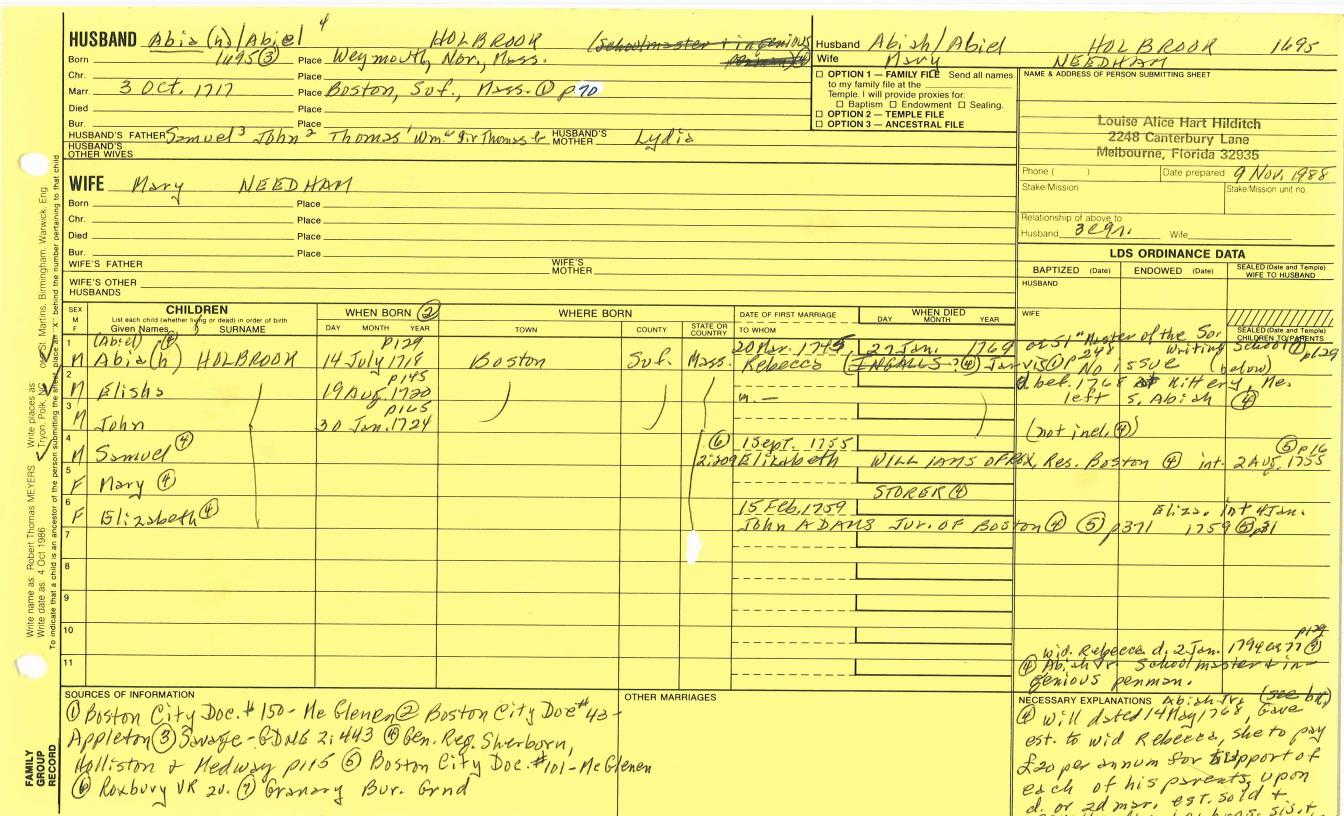 HUSBAND Abia(h)/Abiel 4 HOLBROOK (Schoolmaster + ingenious penman)(4)
Born 1695(3) Place Weymouth, Nor., Mass.
Chr. Place
Marr 3 Oct. 1717 Place Boston, Suf., Mass. (1) p 70
Died Place
Bur. Place
HUSBAND'S FATHER Samuel 3 John 2 Thomas 1 Wm. HUSBAND'S MOTHER Lydia
HUSBAND'S OTHER WIVES
WIFE Mary NEEDHAM
Born Place
Chr. Place
Died Place
Bur. Place
WIFE'S FATHER WIFE'S MOTHER
WIFE'S OTHER HUSBANDS
Husband Abiah/Abiel HOLBROOK 1695
Wife Mary NEEDHAM
☐ OPTION 1 — FAMILY FILE Send all names
to my family file at the
Temple. I will provide proxies for
☐ Baptism ☐ Endowment ☐ Sealing.
☐ OPTION 2 — TEMPLE FILE
☐ OPTION 3 — ANCESTRAL FILE
NAME & ADDRESS OF PERSON SUBMITTING SHEET
Louise Alice Hart Hilditch
2248 Canterbury Lane
Melbourne, Florida 32935
Phone ( ) Date prepared 9 Nov. 1988
Stake/Mission Stake/Mission unit no.
Relationship of above to
Husband 3cgn. Wife
LDS ORDINANCE DATA
BAPTIZED (Date) ENDOWED (Date) SEALED (Date and Temple) WIFE TO HUSBAND
HUSBAND
WIFE
SEALED (Date and Temple) CHILDREN TO PARENTS
SEX M F
CHILDREN
List each child (whether living or dead) in order of birth
Given Names SURNAME
WHEN BORN (2)
DAY MONTH YEAR
WHERE BORN
TOWN COUNTY STATE OR COUNTRY
DATE OF FIRST MARRIAGE
TO WHOM
WHEN DIED
DAY MONTH YEAR
1 (Abiel) p129 20 Mar. 1745 27 Jan. 1769 "Master of the Sou. Writing School (1) p129
M Abia(h) HOLBROOK 14 July 1718 Boston Suf. Mass. Rebecca (INGALLS ?(4) Jarvis (1) p 248 No issue (below)
2 p145 d. bef. 1768 at Kittery, Me.
M Elisha 19 Aug. 1720 m. — left s. Abiah (4)
3 p165
M John 30 Jan. 1724 (not incl. (4))
4 (6) 1 Sept. 1755 (5) p16
M Samuel (4) 2:209 Elizabeth WILLIAMS OF ROX, Res. Boston (4) int. 2 Aug. 1755
5 STORER (4)
F Mary (4)
6 15 Feb. 1759 Eliza. int 4 Jan.
F Elizabeth (4) John ADAMS Jur. OF Boston (4) (5) p371 1759 (5) p31
7
8
9
10
11
p129
wid. Rebecca d. 2 Jan. 1794 ae 77 (7)
(4) Abiah Jr. Schoolmaster + in-
genious penman.
SOURCES OF INFORMATION
(1) Boston City Doc. #150 - McGlenen (2) Boston City Doc #43 -
Appleton (3) Savage - GDNE 2:443 (4) Gen. Reg. Sherborn,
Holliston & Medway p 115 (5) Boston City Doc. #101 - McGlenen
(6) Roxbury VR 2v. (7) Granary Bur. Grnd
OTHER MARRIAGES
NECESSARY EXPLANATIONS Abiah Jr. (see bk)
(4) Will dated 14 May 1768, Gave
est. to wid Rebecca, she to pay
£20 per annum for support of
each of his parents, upon
d. or 2d mar. est. sold +
FAMILY GROUP RECORD
Write name as Robert Thomas MEYERS Write places as Tryon, Polk, NC or St. Martins, Birmingham, Warwick, Eng.
Write date as 4 Oct 1986
To indicate that a child is an ancestor of the person submitting the sheet, place an "X" behind the number pertaining to that child